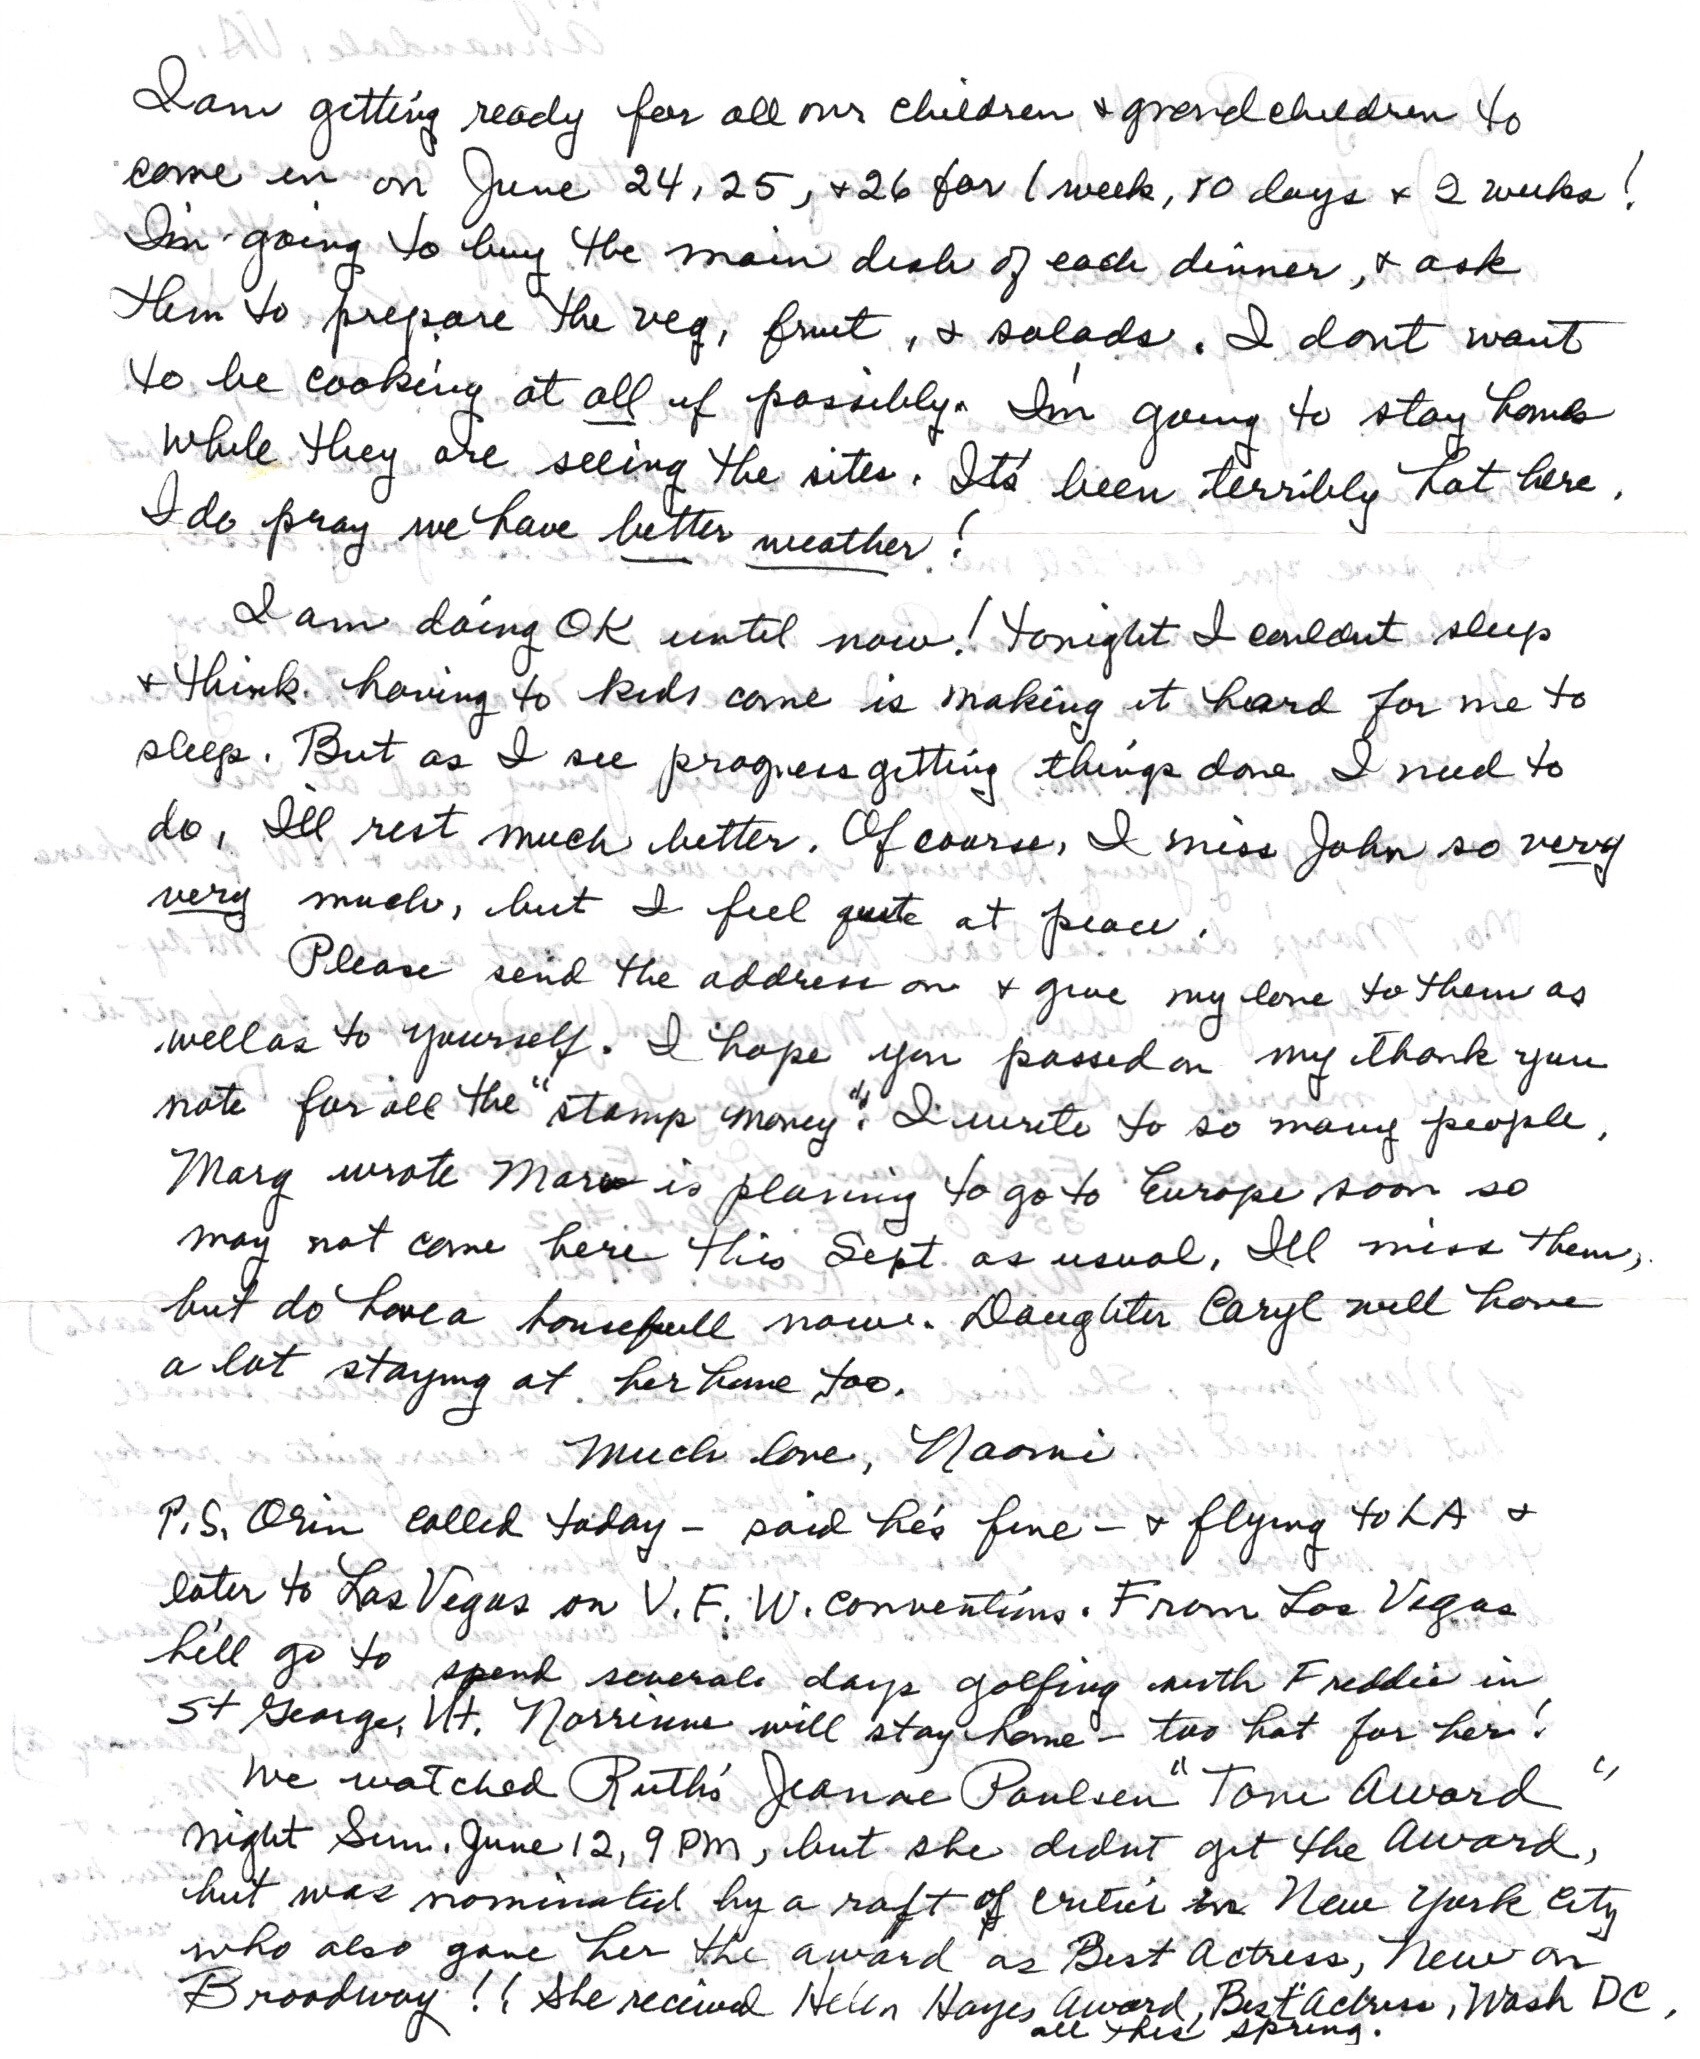 I am getting ready for all our children & grandchildren to
come in on June 24, 25, & 26 for 1 week, 10 days & 2 weeks!
I'm going to buy the main dish of each dinner, & ask
them to prepare the veg, fruit, & salads. I dont want
to be cooking at all if possibly. I'm going to stay home
while they are seeing the sites. It's been terribly hot here.
I do pray we have better weather!
I am doing OK until now! Tonight I couldnt sleep
& think having to kids come is making it hard for me to
sleep. But as I see progress getting things done I need to
do, I'll rest much better. Of course, I miss John so very
very much, but I feel quite at peace.
Please send the address on & give my love to them as
well as to yourself. I hope you passed on my thank you
note for all the "stamp money". I write to so many people.
Marg wrote is planing to go to Europe soon so
may not come here this Sept. as usual, I'll miss them,
but do have a housefull now. Daughter Caryl will have
a lot staying at her home too.
Much love, Naomi
P.S. Orin called today - said he's fine - & flying to LA &
later to Las Vegas on V.F.W. conventions. From Las Vegas
he'll go to spend several days golfing with Freddie in
St George, Ut. Norrinne will stay home - too hot for her!
We watched Ruth's Jeanne Paulsen "Toni Award"
night Sun. June 12, 9 PM, but she didnt get the Award,
but was nominated by a raft of critics in New York City
who also gave her the award as Best Actress, New on
Broadway!! She received Helen Hayes Award, Best Actress, Wash DC,
all this spring.